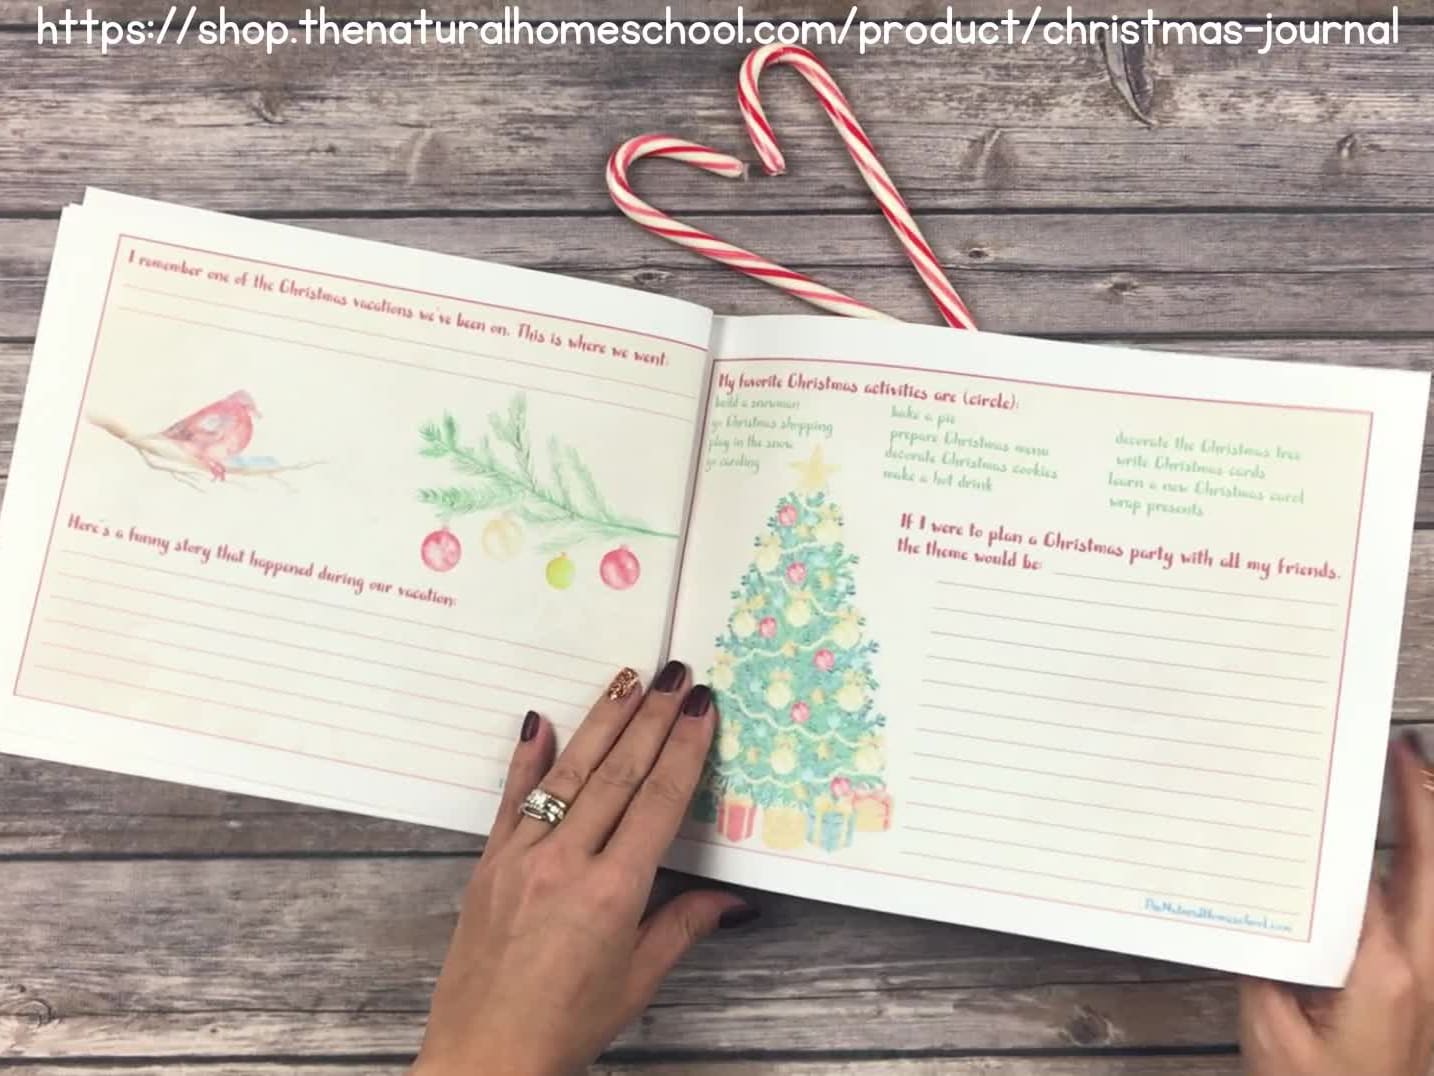 https://shop.thenaturalhomeschool.com/product/christmas-journal
I remember one of the Christmas vacations we've been on. This is where we went:
Here's a funny story that happened during our vacation:
My favorite Christmas activities are (circle):
build a snowman
go Christmas shopping
play in the snow
go caroling
bake a pie
prepare Christmas menu
decorate Christmas cookies
make a hot drink
decorate the Christmas tree
write Christmas cards
learn a new Christmas carol
wrap presents
If I were to plan a Christmas party with all my friends,
the theme would be:
TheNaturalHomeschool.com